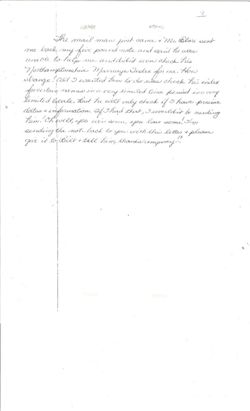 2
The mail man just came & Mr. Blais sent
me back my five pound note and said he was
unable to help me and didn't even check his
Northamptonshire Marriage Index for me. How
strange! All I wanted him to do was check his index
for certain names in a very limited time period in a very
limited locale. But he will only check if I have precise
dates & information. If I had that, I wouldn't be needing
him! Oh well, you win some, you lose some! I'm
sending the note back to you with this letter & please
give it to Bill & tell him, "thanks anyway."